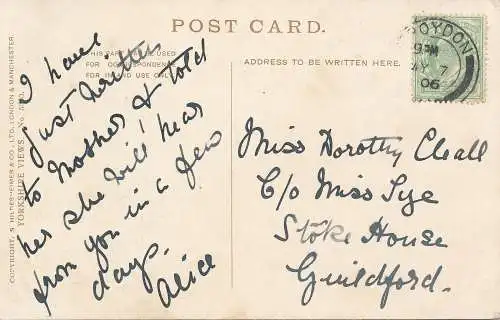 POST CARD.
THIS PART MAY BE USED
FOR CORRESPONDENCE
FOR INLAND USE ONLY.
ADDRESS TO BE WRITTEN HERE.
CROYDON
9 PM
7
06
I have
just written
to Mother & told
her she will hear
from you in a few
days.
Alice
Miss Dorothy Cleall
C/o Miss Tye
Stoke House
Guildford.
COPYRIGHT, S. HILDESHEIMER & CO., LTD., LONDON & MANCHESTER.
YORKSHIRE VIEWS. No.